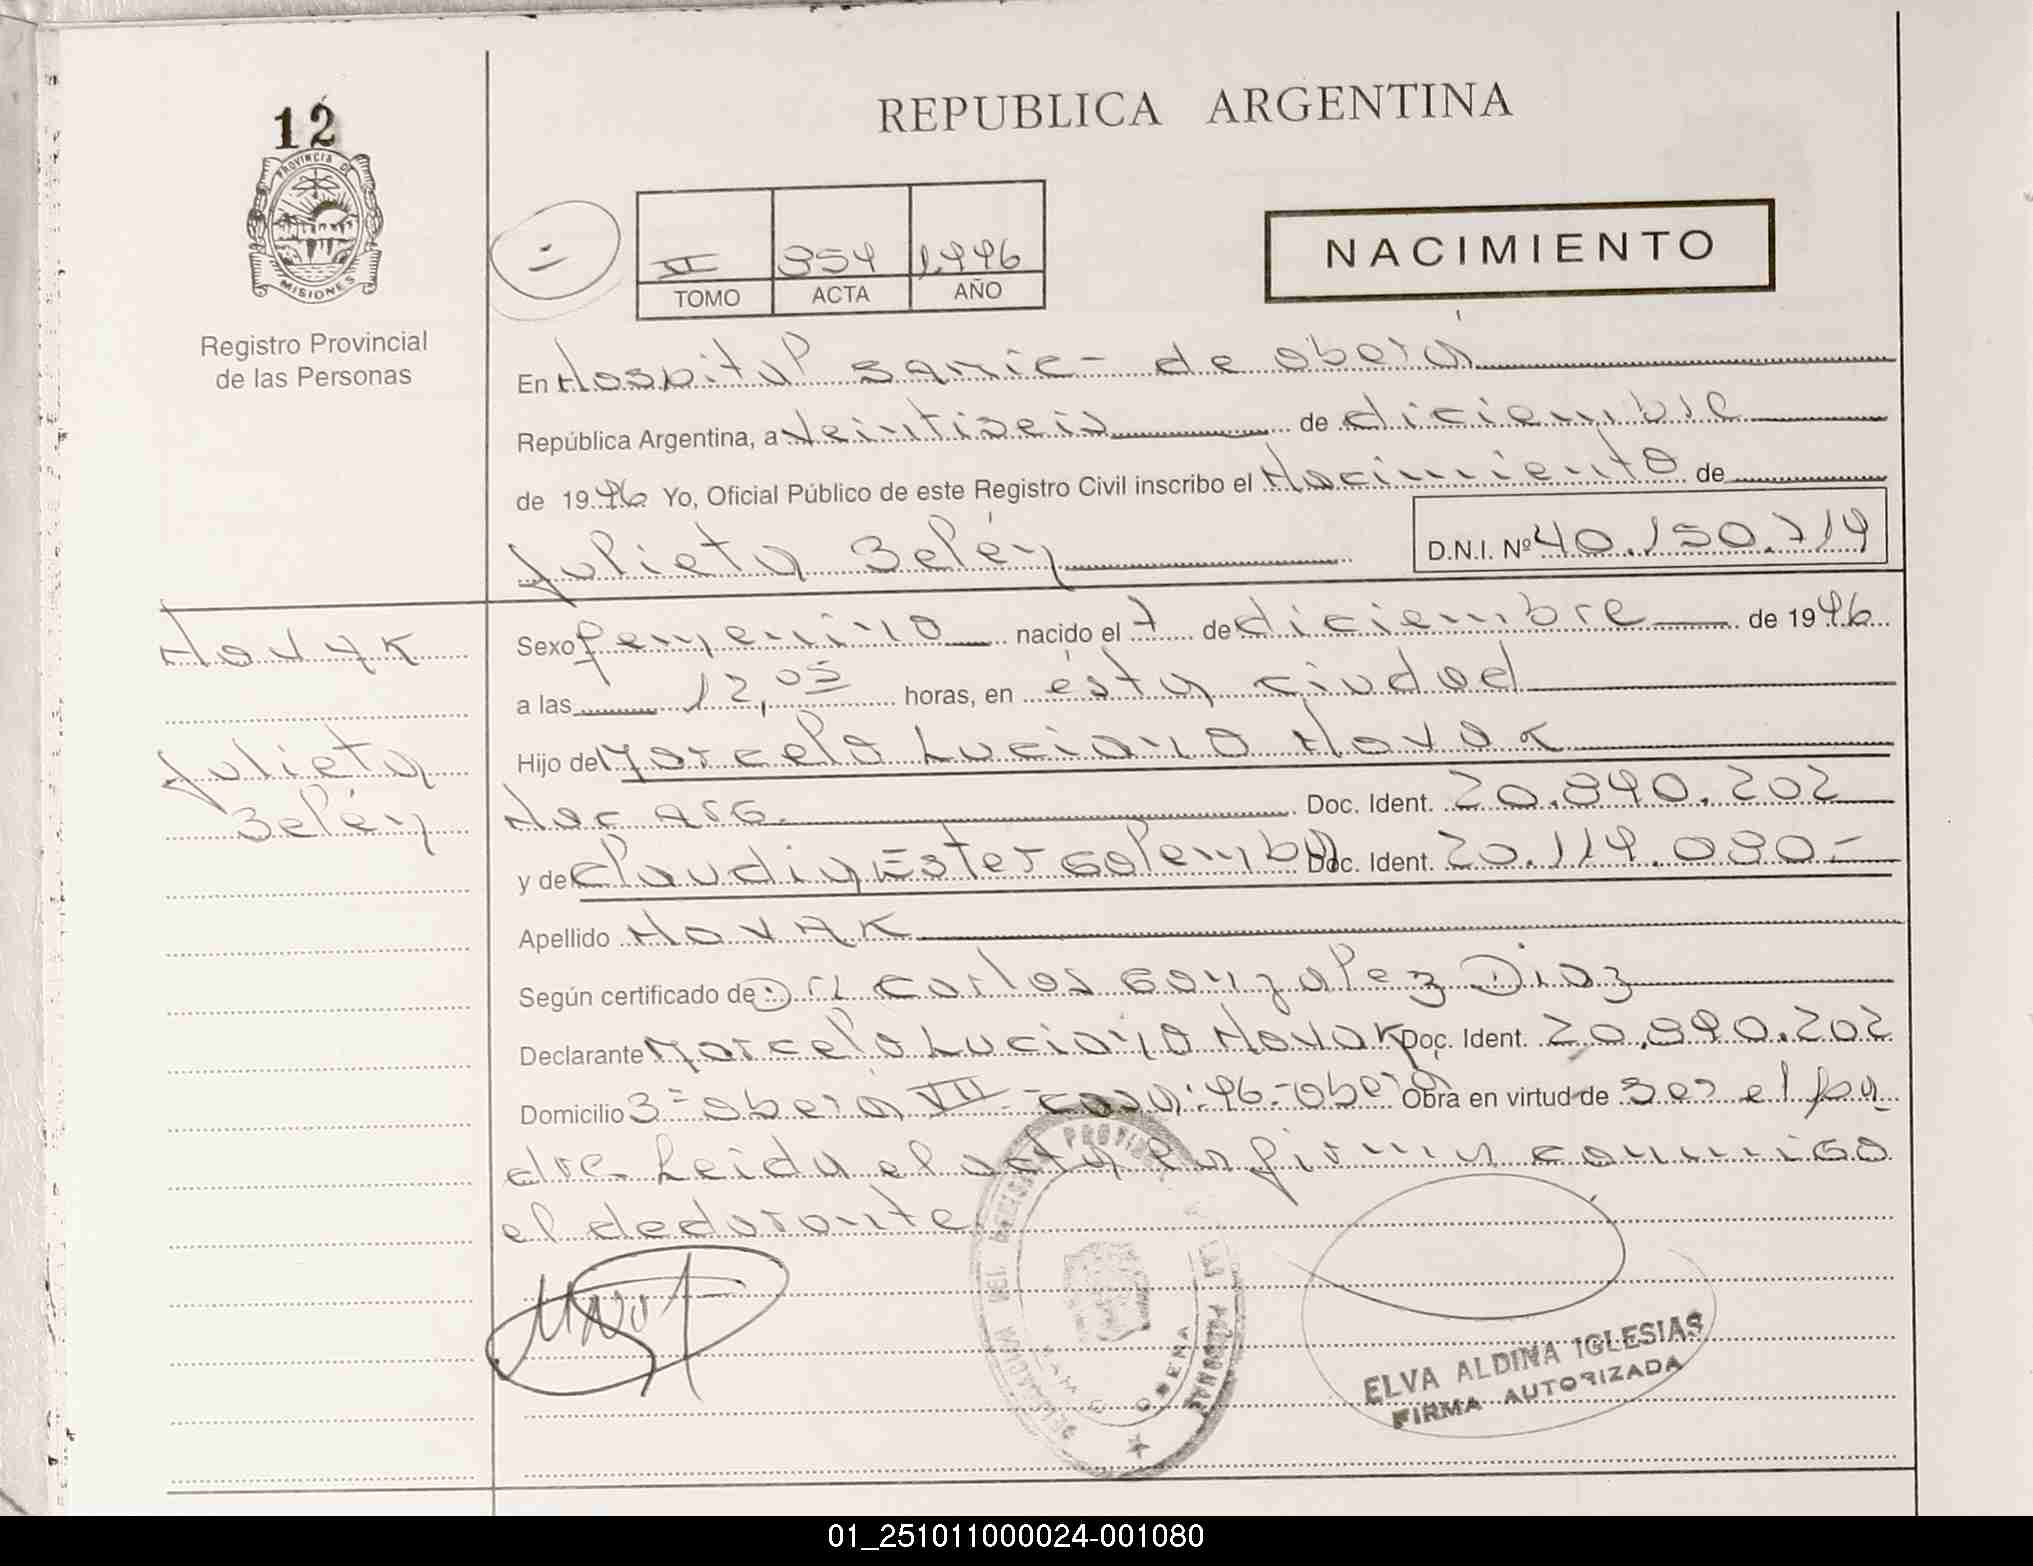 12
PROVINCIA DE MISIONES
Registro Provincial
de las Personas
REPUBLICA ARGENTINA
VI 354 1.996
TOMO ACTA AÑO
NACIMIENTO
En Hospital Samic - de oberá
República Argentina, a veintiseis de diciembre
de 1996 Yo, Oficial Público de este Registro Civil inscribo el Nacimiento de
Julieta Belén D.N.I. Nº 40.150.714
Novak
Julieta
Belén
Sexo femenino nacido el 7 de diciembre de 1996
a las 12,05 horas, en ésta ciudad
Hijo de Marcelo Luciano Novak
Nac Arg. Doc. Ident. 20.890.202
y de Claudia Ester Golemba Doc. Ident. 20.119.080-
Apellido NOVAK
Según certificado de Dr. Carlos Gonzalez Diaz
Declarante Marcelo Luciano Novak Doc. Ident. 20.890.202
Domicilio 3= oberá VII - casa: 96 - oberá Obra en virtud de Ser el pa
dre - Leida el acta la firma conmigo
el declarante
ELVA ALDINA IGLESIAS
FIRMA AUTORIZADA
01_251011000024-001080